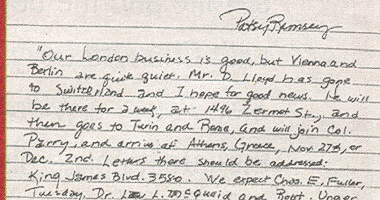 Patsy Ramsey
"Our London business is good, but Vienna and
Berlin are quiet. Mr. D. Lloyd has gone
to Switzerland and I hope for good news. He will
be there for a week, at 1496 Zermot St., and
then goes to Turin and Rome, and will join Col.
Parry, and arrive at Athens, Greece, Nov 27th, or
Dec. 2nd. Letters there should be addressed:
King James Blvd. 3580. We expect Chas. E. Fuller,
Tuesday. Dr. L. McQuaid and Robt. Unger